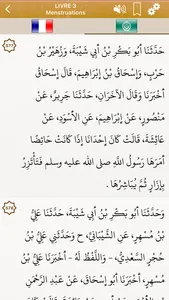 LIVRE 3
Menstruations
577
حَدَّثَنَا أَبُو بَكْرِ بْنُ أَبِي شَيْبَةَ، وَزُهَيْرُ بْنُ
حَرْبٍ، وَإِسْحَاقُ بْنُ إِبْرَاهِيمَ، قَالَ إِسْحَاقُ
أَخْبَرَنَا وَقَالَ الآخَرَانِ، حَدَّثَنَا جَرِيرٌ، عَنْ
مَنْصُورٍ، عَنْ إِبْرَاهِيمَ، عَنِ الأَسْوَدِ، عَنْ
عَائِشَةَ، قَالَتْ كَانَ إِحْدَانَا إِذَا كَانَتْ حَائِضًا
أَمَرَهَا رَسُولُ اللَّهِ صلى الله عليه وسلم فَتَأْتَزِرُ
بِإِزَارٍ ثُمَّ يُبَاشِرُهَا ‏.‏
578
وَحَدَّثَنَا أَبُو بَكْرِ بْنُ أَبِي شَيْبَةَ، حَدَّثَنَا عَلِيُّ
بْنُ مُسْهِرٍ، عَنِ الشَّيْبَانِيِّ، ح وَحَدَّثَنِي عَلِيُّ بْنُ
حُجْرٍ السَّعْدِيُّ، - وَاللَّفْظُ لَهُ - أَخْبَرَنَا عَلِيُّ بْنُ
مُسْهِرٍ، أَخْبَرَنَا أَبُو إِسْحَاقَ، عَنْ عَبْدِ الرَّحْمَنِ